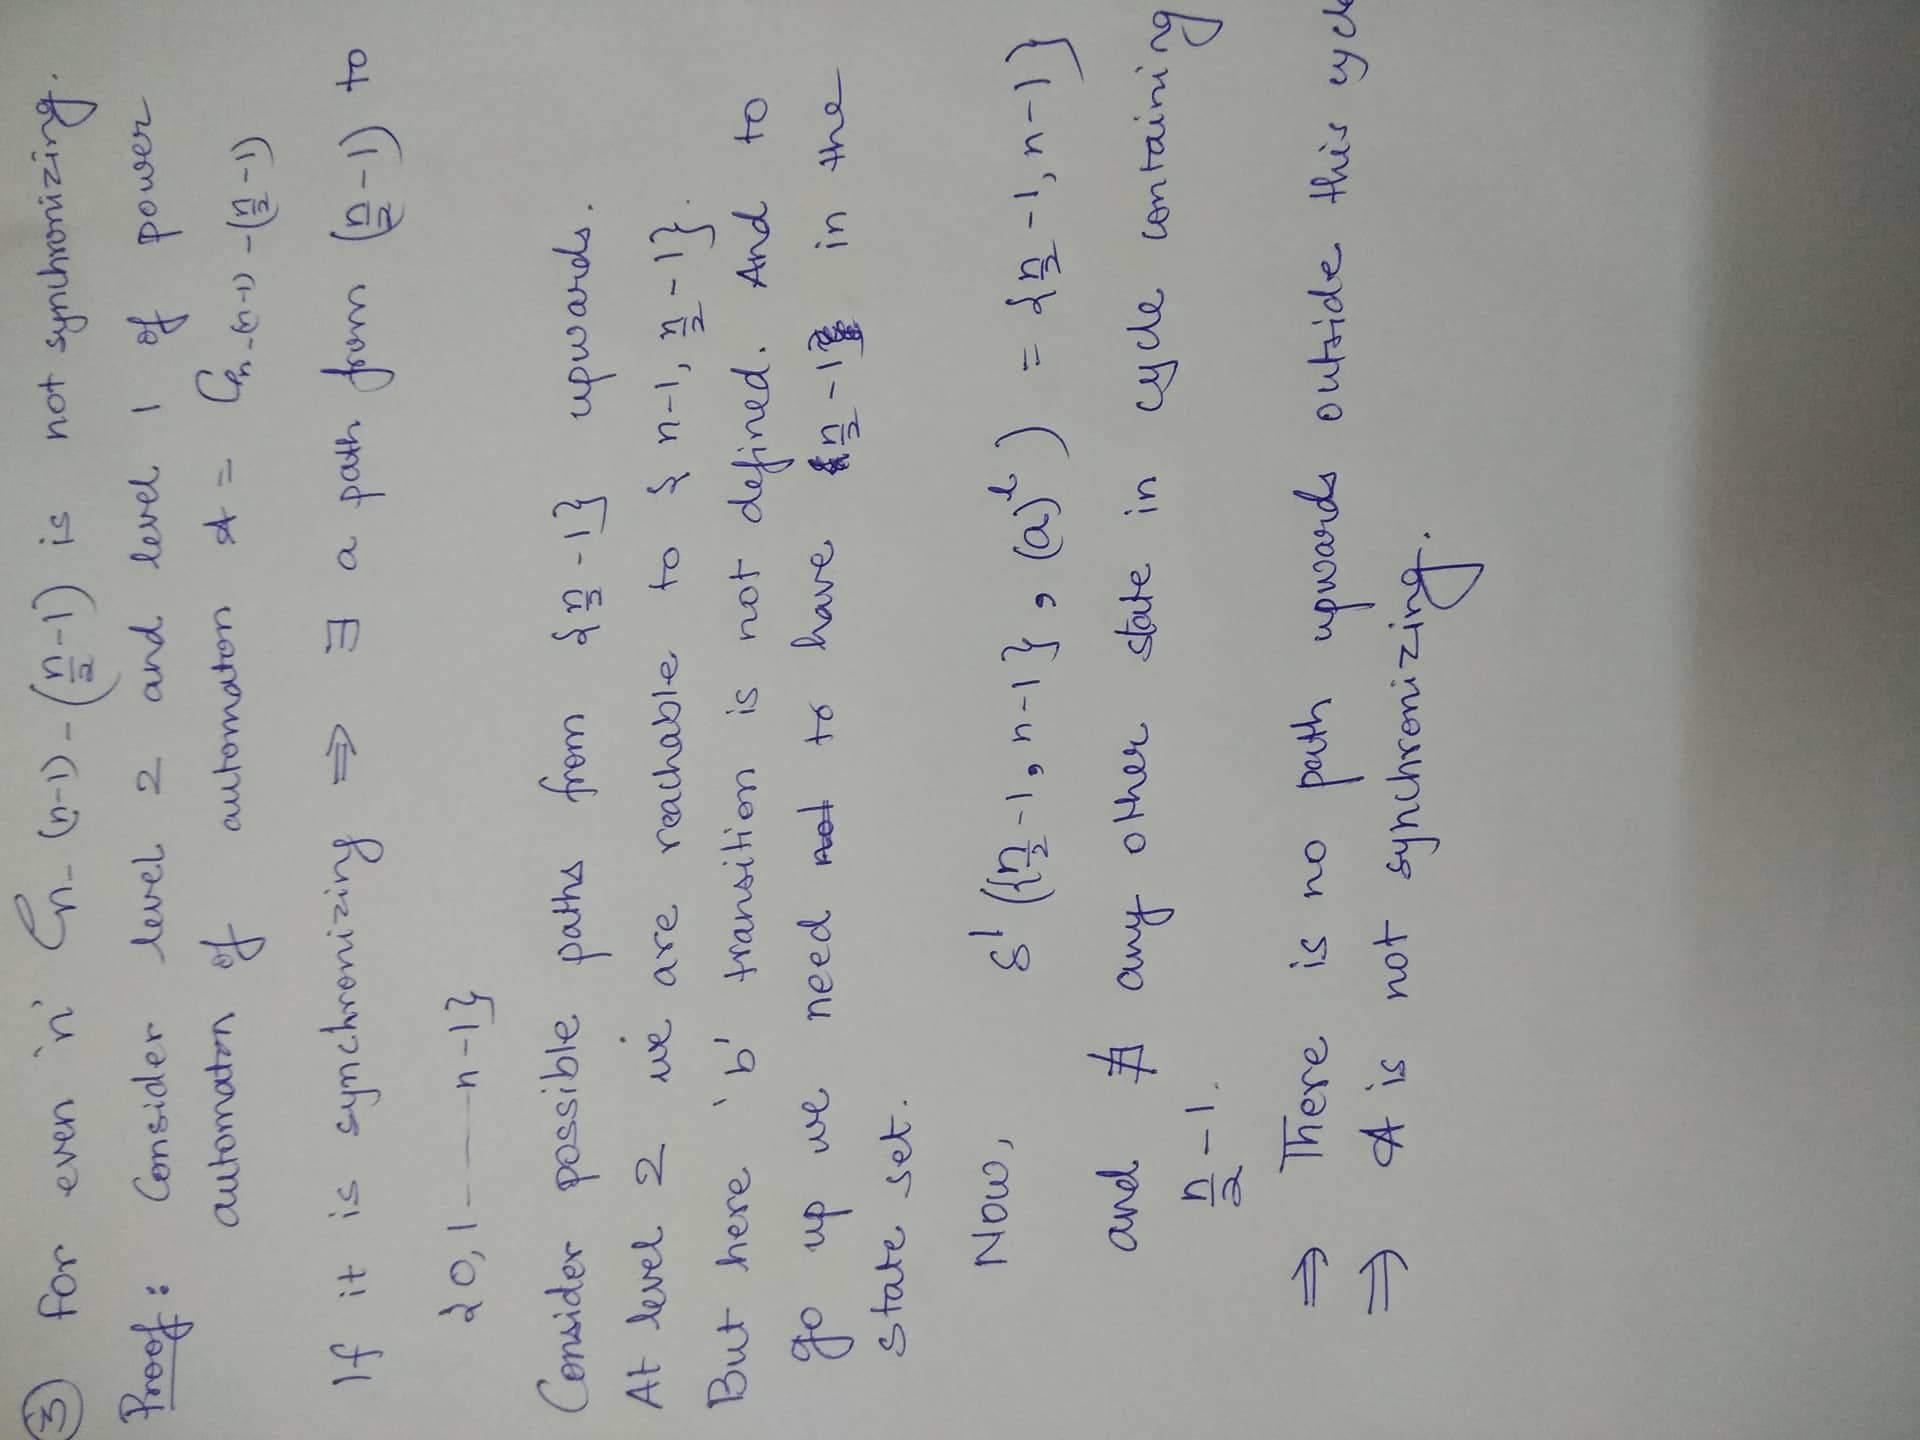 ③ For even 'n' Cn-(n-1)-(n/2-1) is not synchronizing.
Proof: Consider level 2 and level 1 of power
automaton of automaton A = Cn-(n-1)-(n/2-1)
If it is synchronizing ⇒ ∃ a path from (n/2-1) to
{0,1-----n-1}
Consider possible paths from {n/2-1} upwards.
At level 2 we are reachable to {n-1, n/2-1}.
But here 'b' transition is not defined. And to
go up we need not to have n/2-1 in the
state set.
Now, δ'({n/2-1, n-1}, (a)^l) = {n/2-1, n-1}
and ∄ any other state in cycle containing
n/2-1.
⇒ There is no path upwards outside this cycle
⇒ A is not synchronizing.